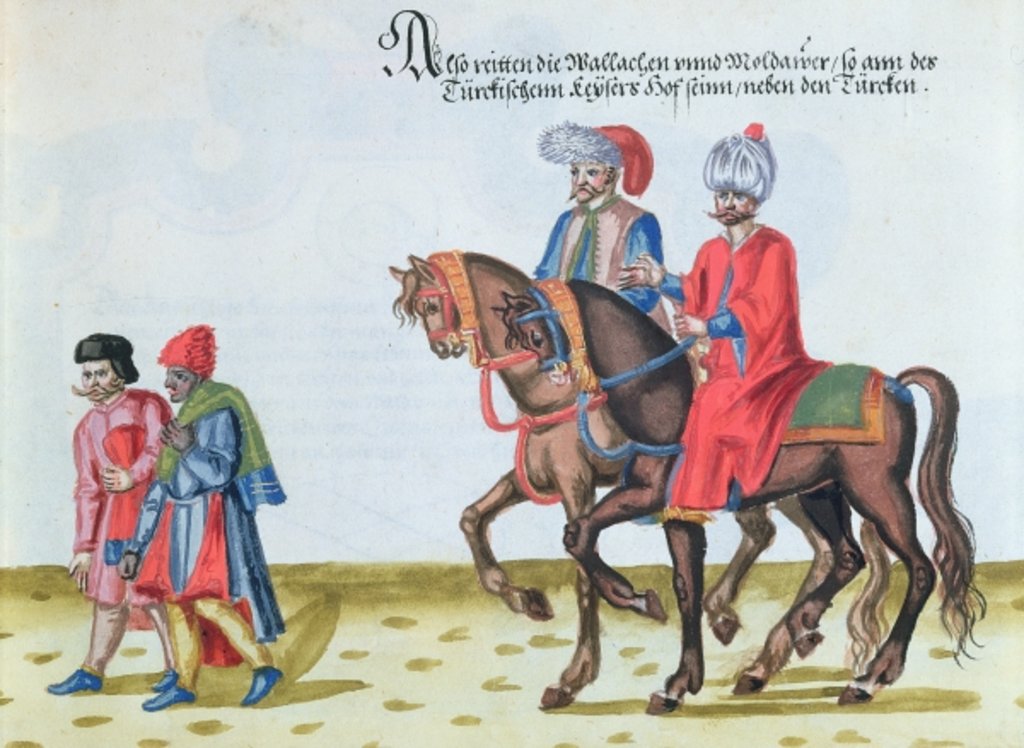 Also reitten die Wallachen vnnd Moldawer / so ann des
Türckischenn Keÿsers Hof seinn / neben den Türcken .